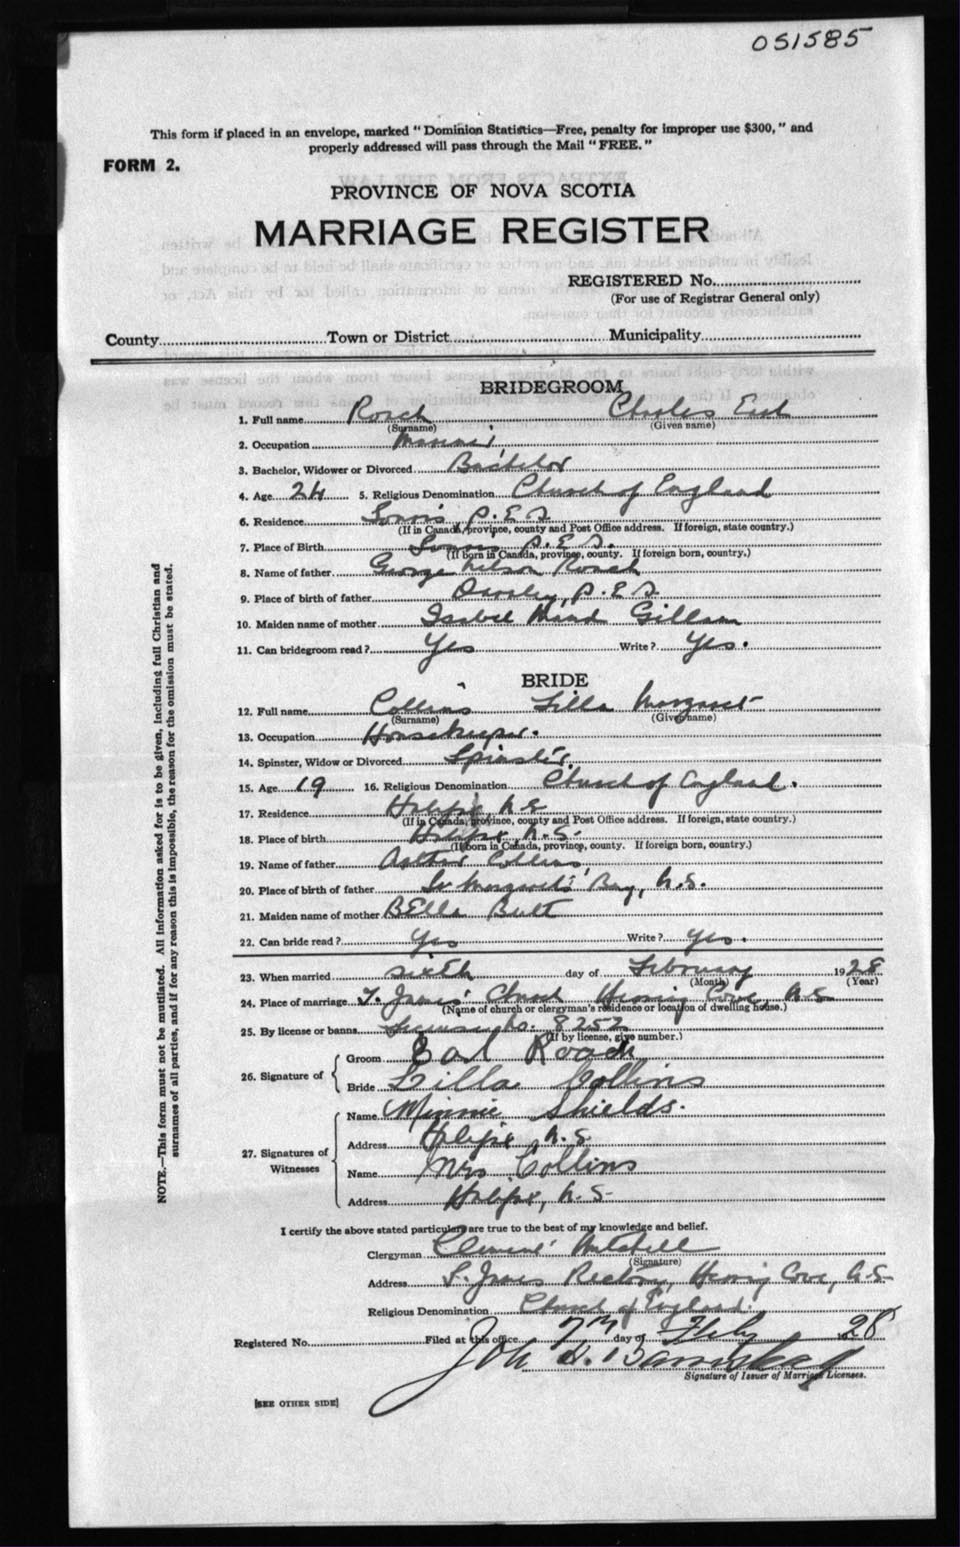 051585
This form if placed in an envelope, marked "Dominion Statistics—Free, penalty for improper use $300," and
properly addressed will pass through the Mail "FREE."
FORM 2.
PROVINCE OF NOVA SCOTIA
MARRIAGE REGISTER
REGISTERED No.
(For use of Registrar General only)
County Town or District Municipality
BRIDEGROOM
1. Full name Roach Charles Earl
(Surname) (Given name)
2. Occupation
3. Bachelor, Widower or Divorced Bachelor
4. Age 24 5. Religious Denomination Church of England
6. Residence P.E.I.
(If in Canada, province, county and Post Office address. If foreign, state country.)
7. Place of Birth P.E.I.
(If born in Canada, province, county. If foreign born, country.)
8. Name of father George Nelson Roach
9. Place of birth of father Darnley, P.E.I.
10. Maiden name of mother Isabel Maud Gillam
11. Can bridegroom read? Yes Write? Yes.
BRIDE
12. Full name Collins Lilla Margaret
(Surname) (Given name)
13. Occupation Housekeeper.
14. Spinster, Widow or Divorced Spinster.
15. Age 19 16. Religious Denomination Church of England.
17. Residence Halifax N.S.
(If in Canada, province, county and Post Office address. If foreign, state country.)
18. Place of birth Halifax N.S.
(If born in Canada, province, county. If foreign born, country.)
19. Name of father Arthur Collins
20. Place of birth of father St. Margaret's Bay, N.S.
21. Maiden name of mother Bella Butt
22. Can bride read? Yes Write? Yes.
23. When married sixth day of February 1928
(Month) (Year)
24. Place of marriage St. James' Church Herring Cove, N.S.
(Name of church or clergyman's residence or location of dwelling house.)
25. By license or banns License No. 8252
(If by license, give number.)
26. Signature of
Groom Earl Roach
Bride Lilla Collins
27. Signatures of Witnesses
Name Minnie Shields.
Address Halifax N.S.
Name Mrs Collins
Address Halifax, N.S.
I certify the above stated particulars are true to the best of my knowledge and belief.
Clergyman Clement Mitchell
(Signature)
Address St. James Rectory, Herring Cove, N.S.
Religious Denomination Church of England.
Registered No. Filed at this office 7th day of Feby 1928
John
Signature of Issuer of Marriage Licenses.
[SEE OTHER SIDE]
NOTE.—This form must not be mutilated. All information asked for is to be given, including full Christian and
surnames of all parties, and if for any reason this is impossible, the reason for the omission must be stated.